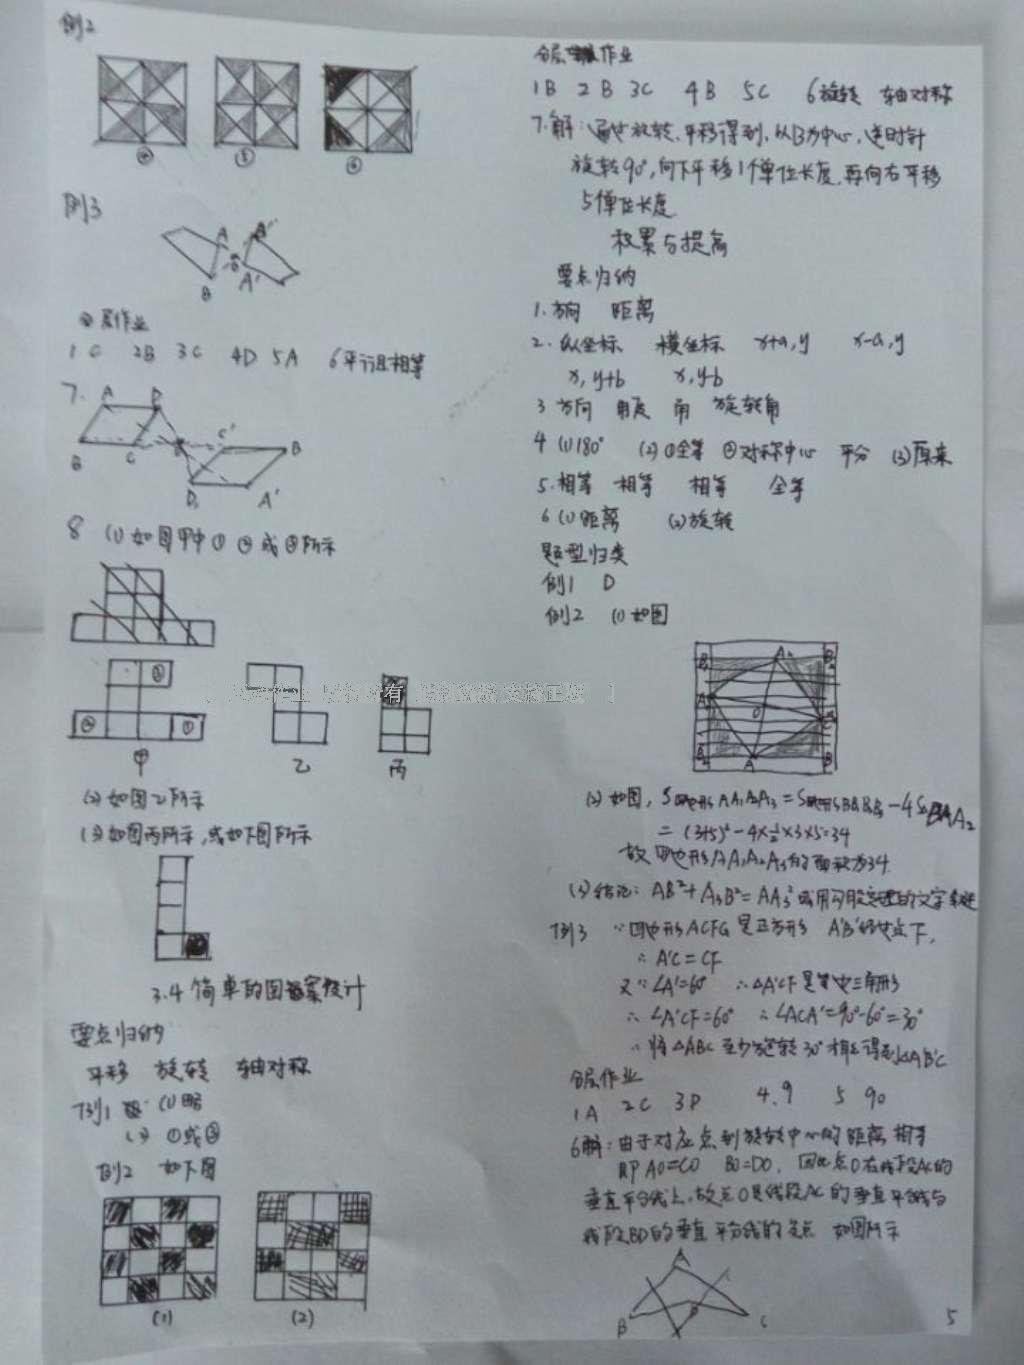 例2
④ ⑤ ⑥
例3
A A'
B A'
分层作业
1C 2B 3C 4D 5A 6平行且相等
7.
A D
B C C' B
D A'
8 (1)如图甲中① ② 或③所示
③
② ①
甲 乙 丙
(2)如图乙所示
(3)如图丙所示,或如下图所示
3.4 简单的图案设计
要点归纳
平移 旋转 轴对称
例1 (1)略
(2) ①或③
例2 如下图
(1) (2)
分层作业
1B 2B 3C 4B 5C 6旋转 轴对称
7.解:通过旋转、平移得到,以B为中心,逆时针
旋转90°,向下平移1个单位长度,再向右平移
5个单位长度
积累与提高
要点归纳
1.方向 距离
2.纵坐标 横坐标 x+a,y x-a,y
x,y+b x,y-b
3 方向 角度 角 旋转角
4 (1)180° (2)①全等 ②对称中心 平分 (3)原来
5.相等 相等 相等 全等
6 (1)距离 (2)旋转
题型归类
例1 D
例2 (1)如图
(2)如图, S四边形AA₁A₂A₃=S四边形BB₁B₂B₃-4S△BAA₂
=(3+5)²-4×½×3×5=34
故四边形AA₁A₂A₃的面积为34.
(3)结论:AB²+A₃B²=AA₃²或用勾股定理的文字
例3 ∵四边形ACFG是正方形 A'B'
∴A'C=CF
又∵∠A'=60° ∴△A'CF是等边三角形
∴∠A'CF=60° ∴∠ACA'=90°-60°=30°
∴将△ABC至少旋转30°才能得到△A'B'C
分层作业
1A 2C 3D 4.9 5 90
6解:由于对应点到旋转中心的距离相等
即AO=CO BO=DO, 因此点O在线段AC的
垂直平分线上,故点O是线段AC的垂直平分线与
线段BD的垂直平分线的交点 如图所示
A
B D C
5